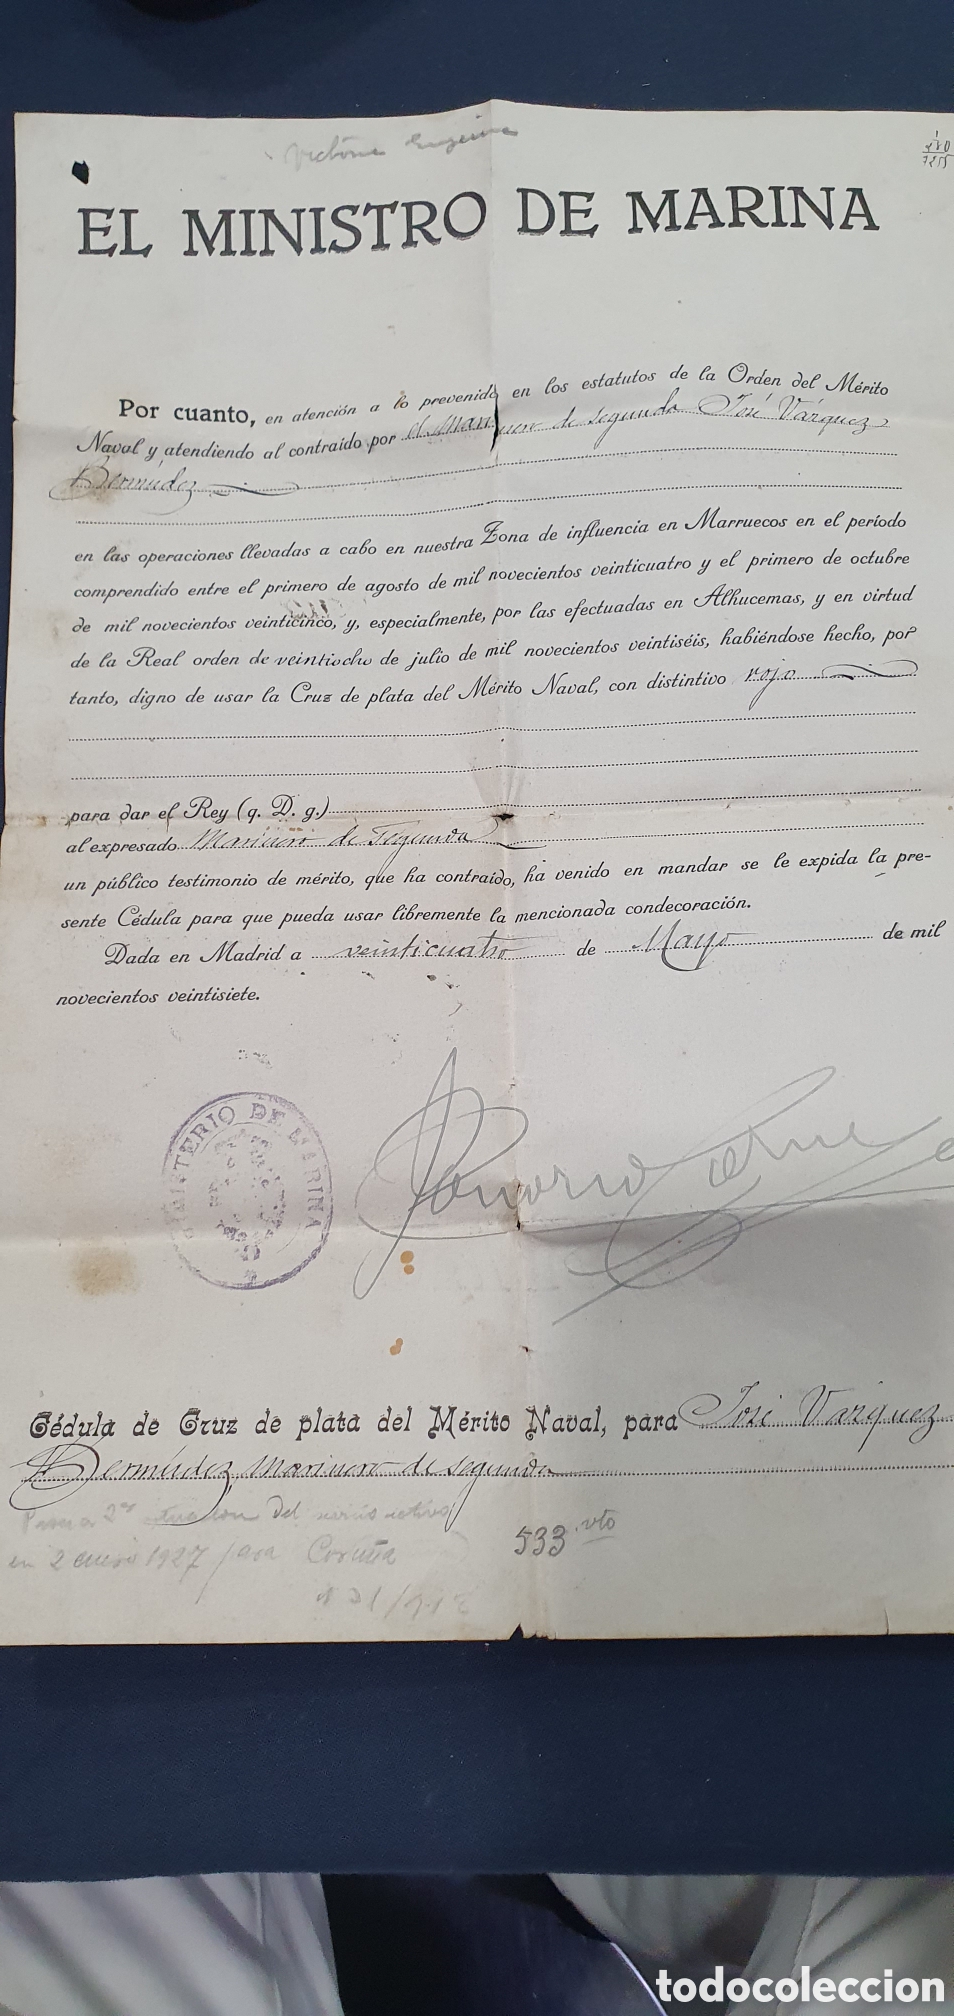 Victoria Eugenia
EL MINISTRO DE MARINA
Por cuanto, en atención a lo prevenido en los estatutos de la Orden del Mérito
Naval y atendiendo al contraído por el Marinero de segunda José Vázquez
Bermúdez
en las operaciones llevadas a cabo en nuestra Zona de influencia en Marruecos en el período
comprendido entre el primero de agosto de mil novecientos veinticuatro y el primero de octubre
de mil novecientos veinticinco, y, especialmente, por las efectuadas en Alhucemas, y en virtud
de la Real orden de veintiocho de julio de mil novecientos veintiséis, habiéndose hecho, por
tanto, digno de usar la Cruz de plata del Mérito Naval, con distintivo rojo
para dar el Rey (q. D. g.)
al expresado Marinero de Segunda
un público testimonio de mérito, que ha contraído, ha venido en mandar se le expida la pre-
sente Cédula para que pueda usar libremente la mencionada condecoración.
Dada en Madrid a veinticuatro de Mayo de mil
novecientos veintisiete.
MINISTERIO DE MARINA
Honorio Cornejo
Cédula de Cruz de plata del Mérito Naval, para José Vázquez
Bermúdez, Marinero de segunda
Pasa a 2ª situacion del servicio activo
en 2 enero 1927 para Coruña
533 vto
todocoleccion